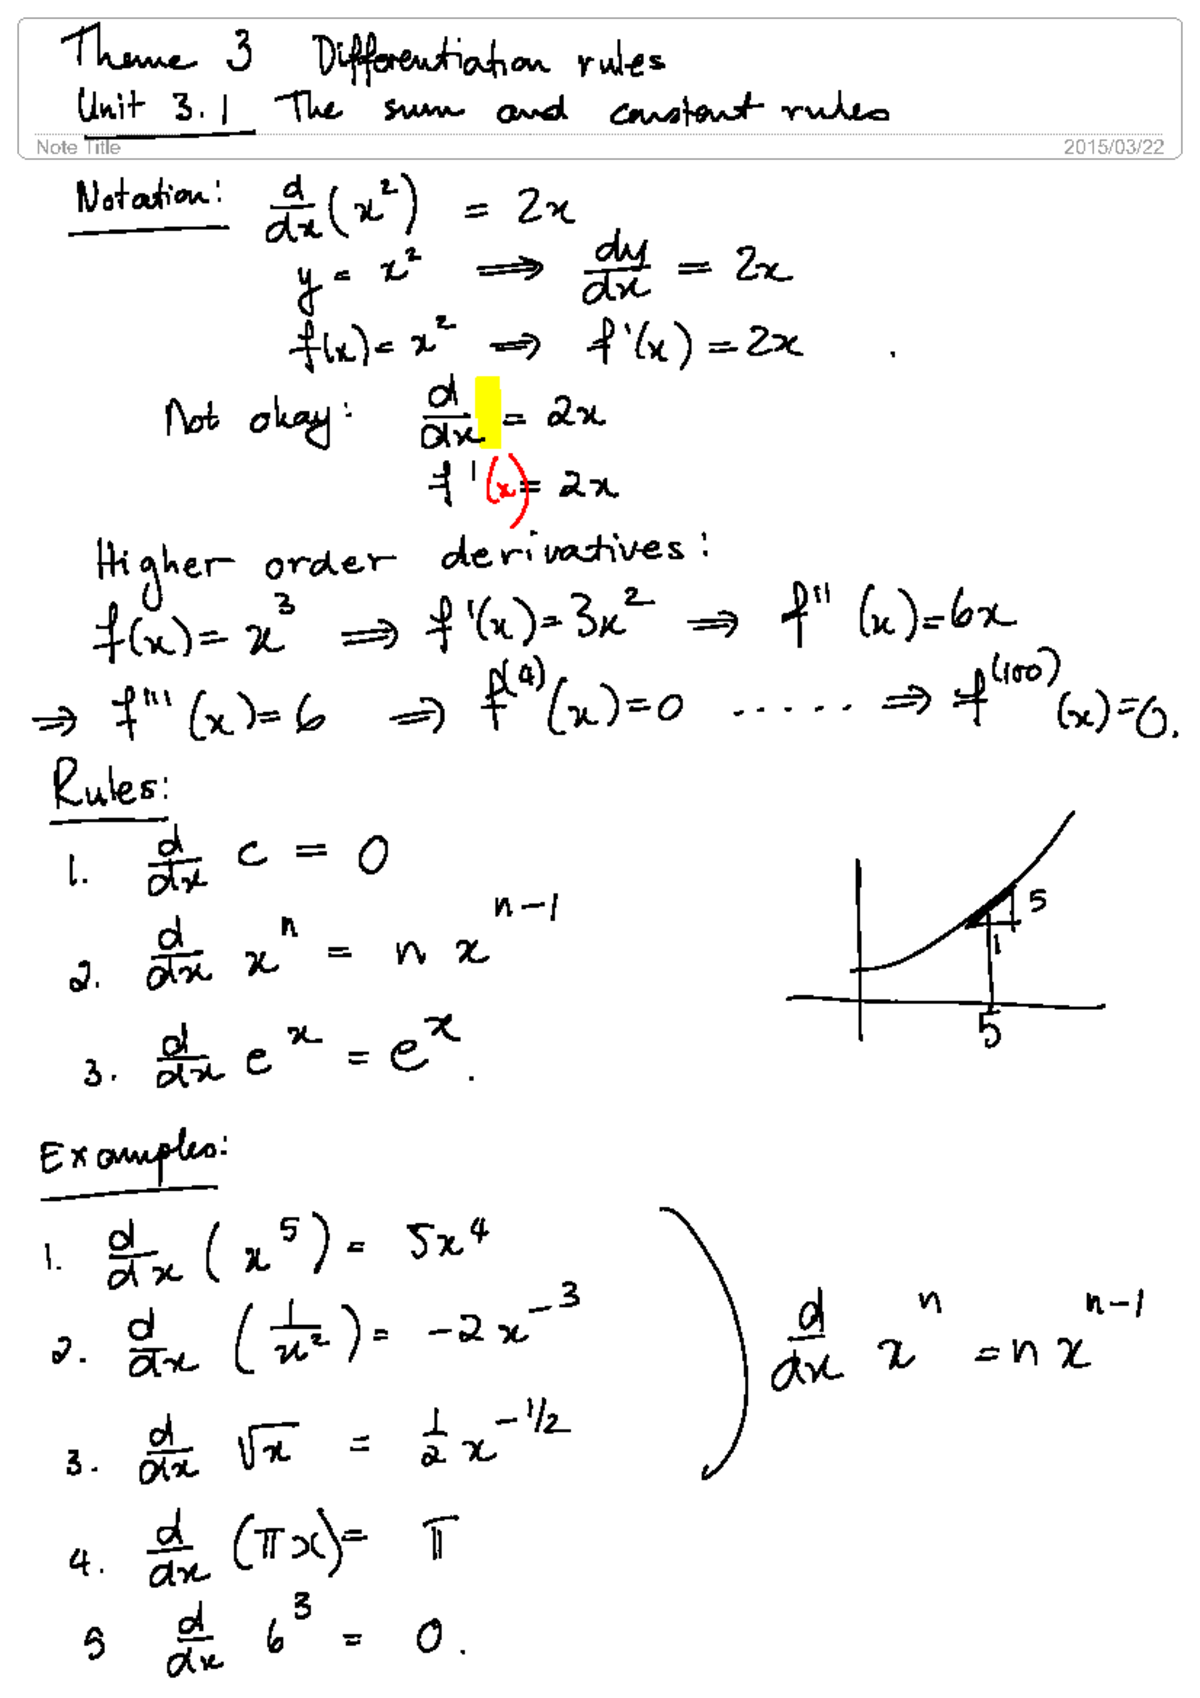 Theme 3 Differentiation rules
Unit 3.1 The sum and constant rules
Note Title 2015/03/22
Notation: d/dx (x²) = 2x
y = x² ⟹ dy/dx = 2x
f(x) = x² ⟹ f'(x) = 2x .
Not okay: d/dx = 2x
f'(x) = 2x
Higher order derivatives:
f(x) = x³ ⟹ f'(x) = 3x² ⟹ f''(x) = 6x
⟹ f'''(x) = 6 ⟹ f⁽⁴⁾(x) = 0 ...... ⟹ f⁽¹⁰⁰⁾(x) = 0.
Rules:
1. d/dx c = 0
2. d/dx xⁿ = n xⁿ⁻¹
3. d/dx eˣ = eˣ.
5
1
5
Examples:
1. d/dx (x⁵) = 5x⁴
2. d/dx (1/x²) = -2x⁻³
d/dx xⁿ = n xⁿ⁻¹
3. d/dx √x = 1/2 x^(-1/2)
4. d/dx (πx) = π
5 d/dx 6³ = 0.